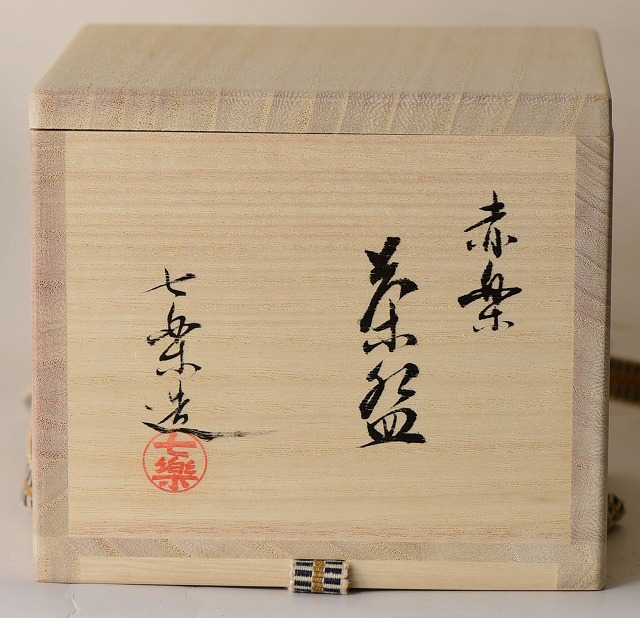 赤楽
茶盌
七楽造
七樂